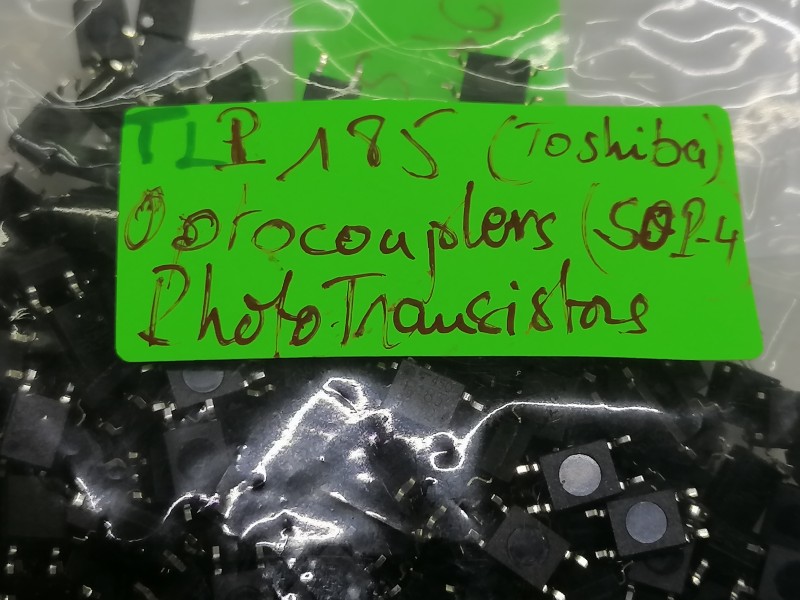 TLP 185 (Toshiba)
Optocouplers (SOP-4
PhotoTransistors